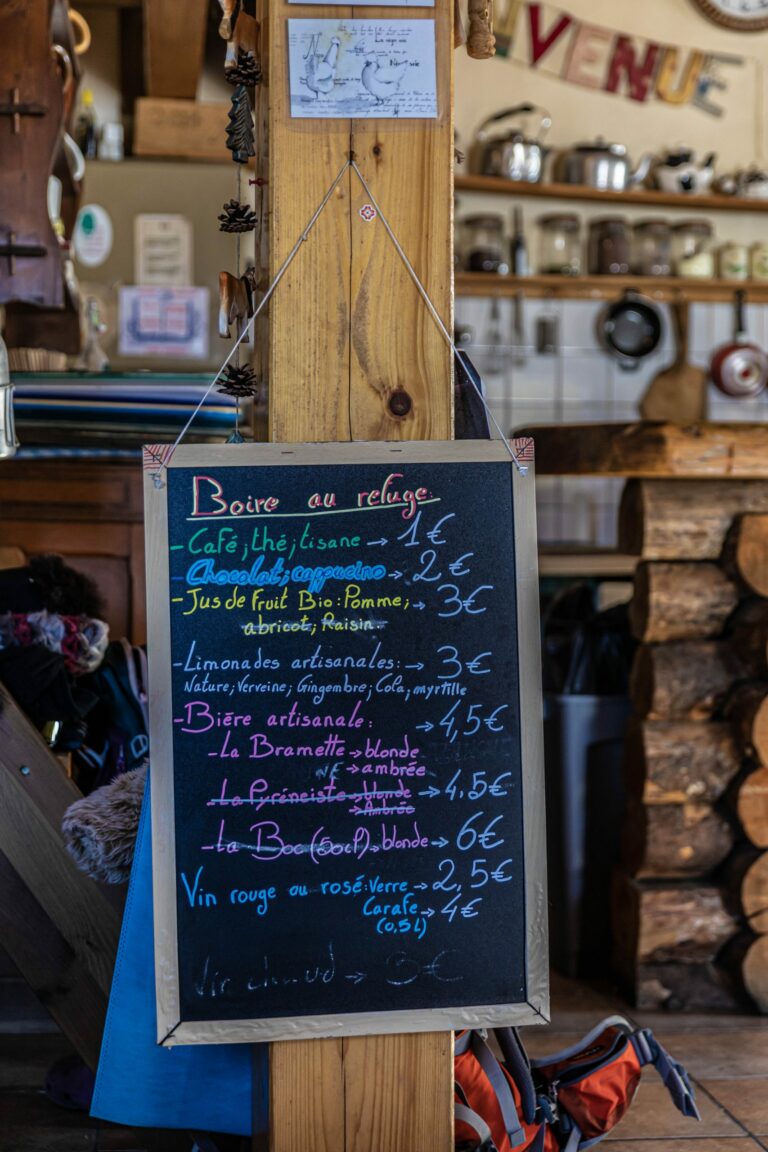 VENUE
Boire au refuge
- Café, thé, tisane → 1€
- Chocolat, cappucino → 2€
- Jus de Fruit Bio : Pomme, → 3€
abricot, Raisin.
- Limonades artisanales : → 3€
Nature, Verveine, Gingembre, Cola, myrtille
- Bière artisanale : → 4,5€
- La Bramette → blonde
→ ambrée
- La Pyréneiste → blonde → 4,5€
→ Ambrée
- La Boc (50cl) → blonde → 6€
Vin rouge ou rosé : Verre → 2,5€
Carafe → 4€
(0,5L)
Vin chaud → 3€